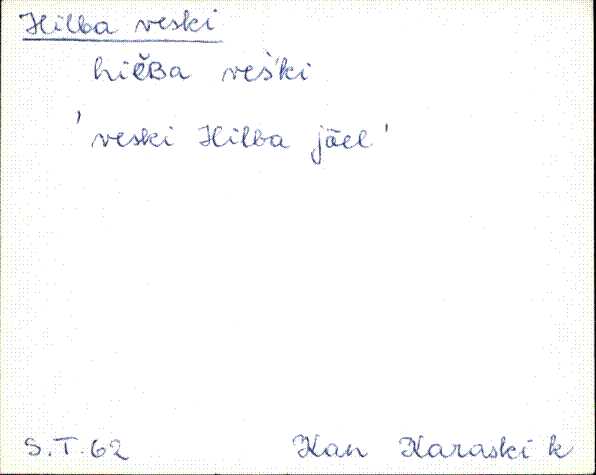 Hilba veski
hiĺBa veśki
'veski Hilba jõel'
S.T. 62 Kan Karaski k